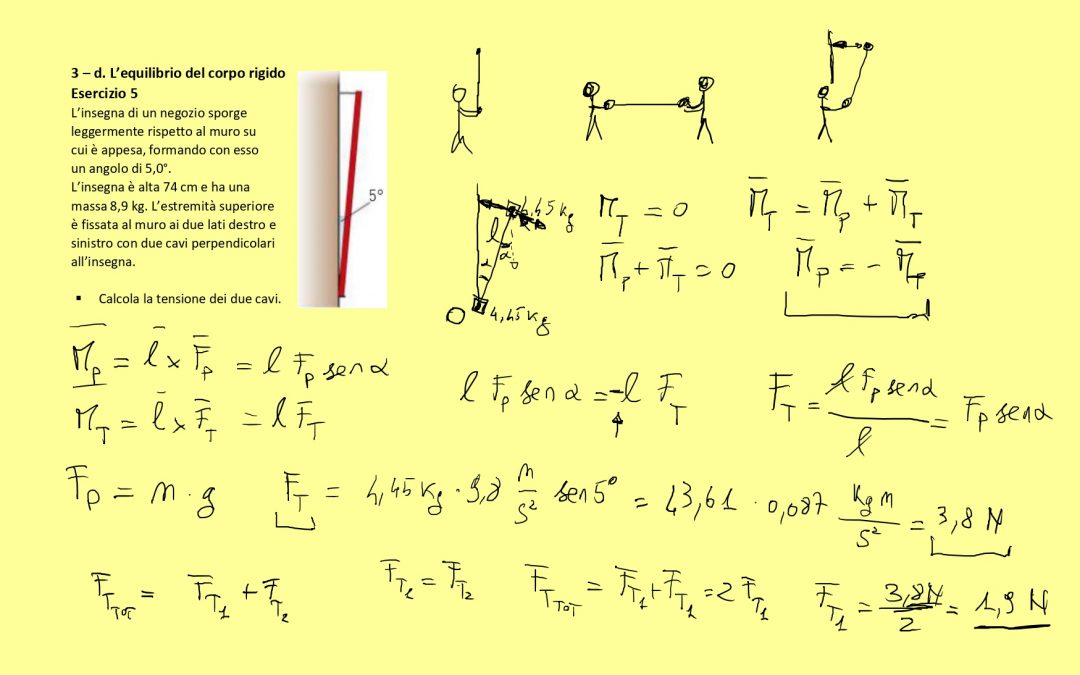 3 – d. L'equilibrio del corpo rigido
Esercizio 5
L'insegna di un negozio sporge
leggermente rispetto al muro su
cui è appesa, formando con esso
un angolo di 5,0°.
L'insegna è alta 74 cm e ha una
massa 8,9 kg. L'estremità superiore
è fissata al muro ai due lati destro e
sinistro con due cavi perpendicolari
all'insegna.
▪ Calcola la tensione dei due cavi.
5°
4,45 kg
l
α
α
O
4,45 kg
M_T = 0
M̄_T = M̄_P + M̄_T
M̄_P + M̄_T = 0
M̄_P = - M̄_P
M̄_P = l̄ × F̄_P = l F_P sen α
M_T = l̄ × F̄_T = l F̄_T
l F_P sen α = -l F_T
F_T = l F_P sen α / l = F_P sen α
F_P = m · g
F_T = 4,45 kg · 9,8 m/s² sen 5° = 43,61 · 0,087 kg m/s² = 3,8 N
F̄_T_TOT = F̄_T1 + F̄_T2
F̄_T1 = F̄_T2
F̄_T_TOT = F̄_T1 + F̄_T1 = 2 F̄_T1
F̄_T1 = 3,8N / 2 = 1,9 N